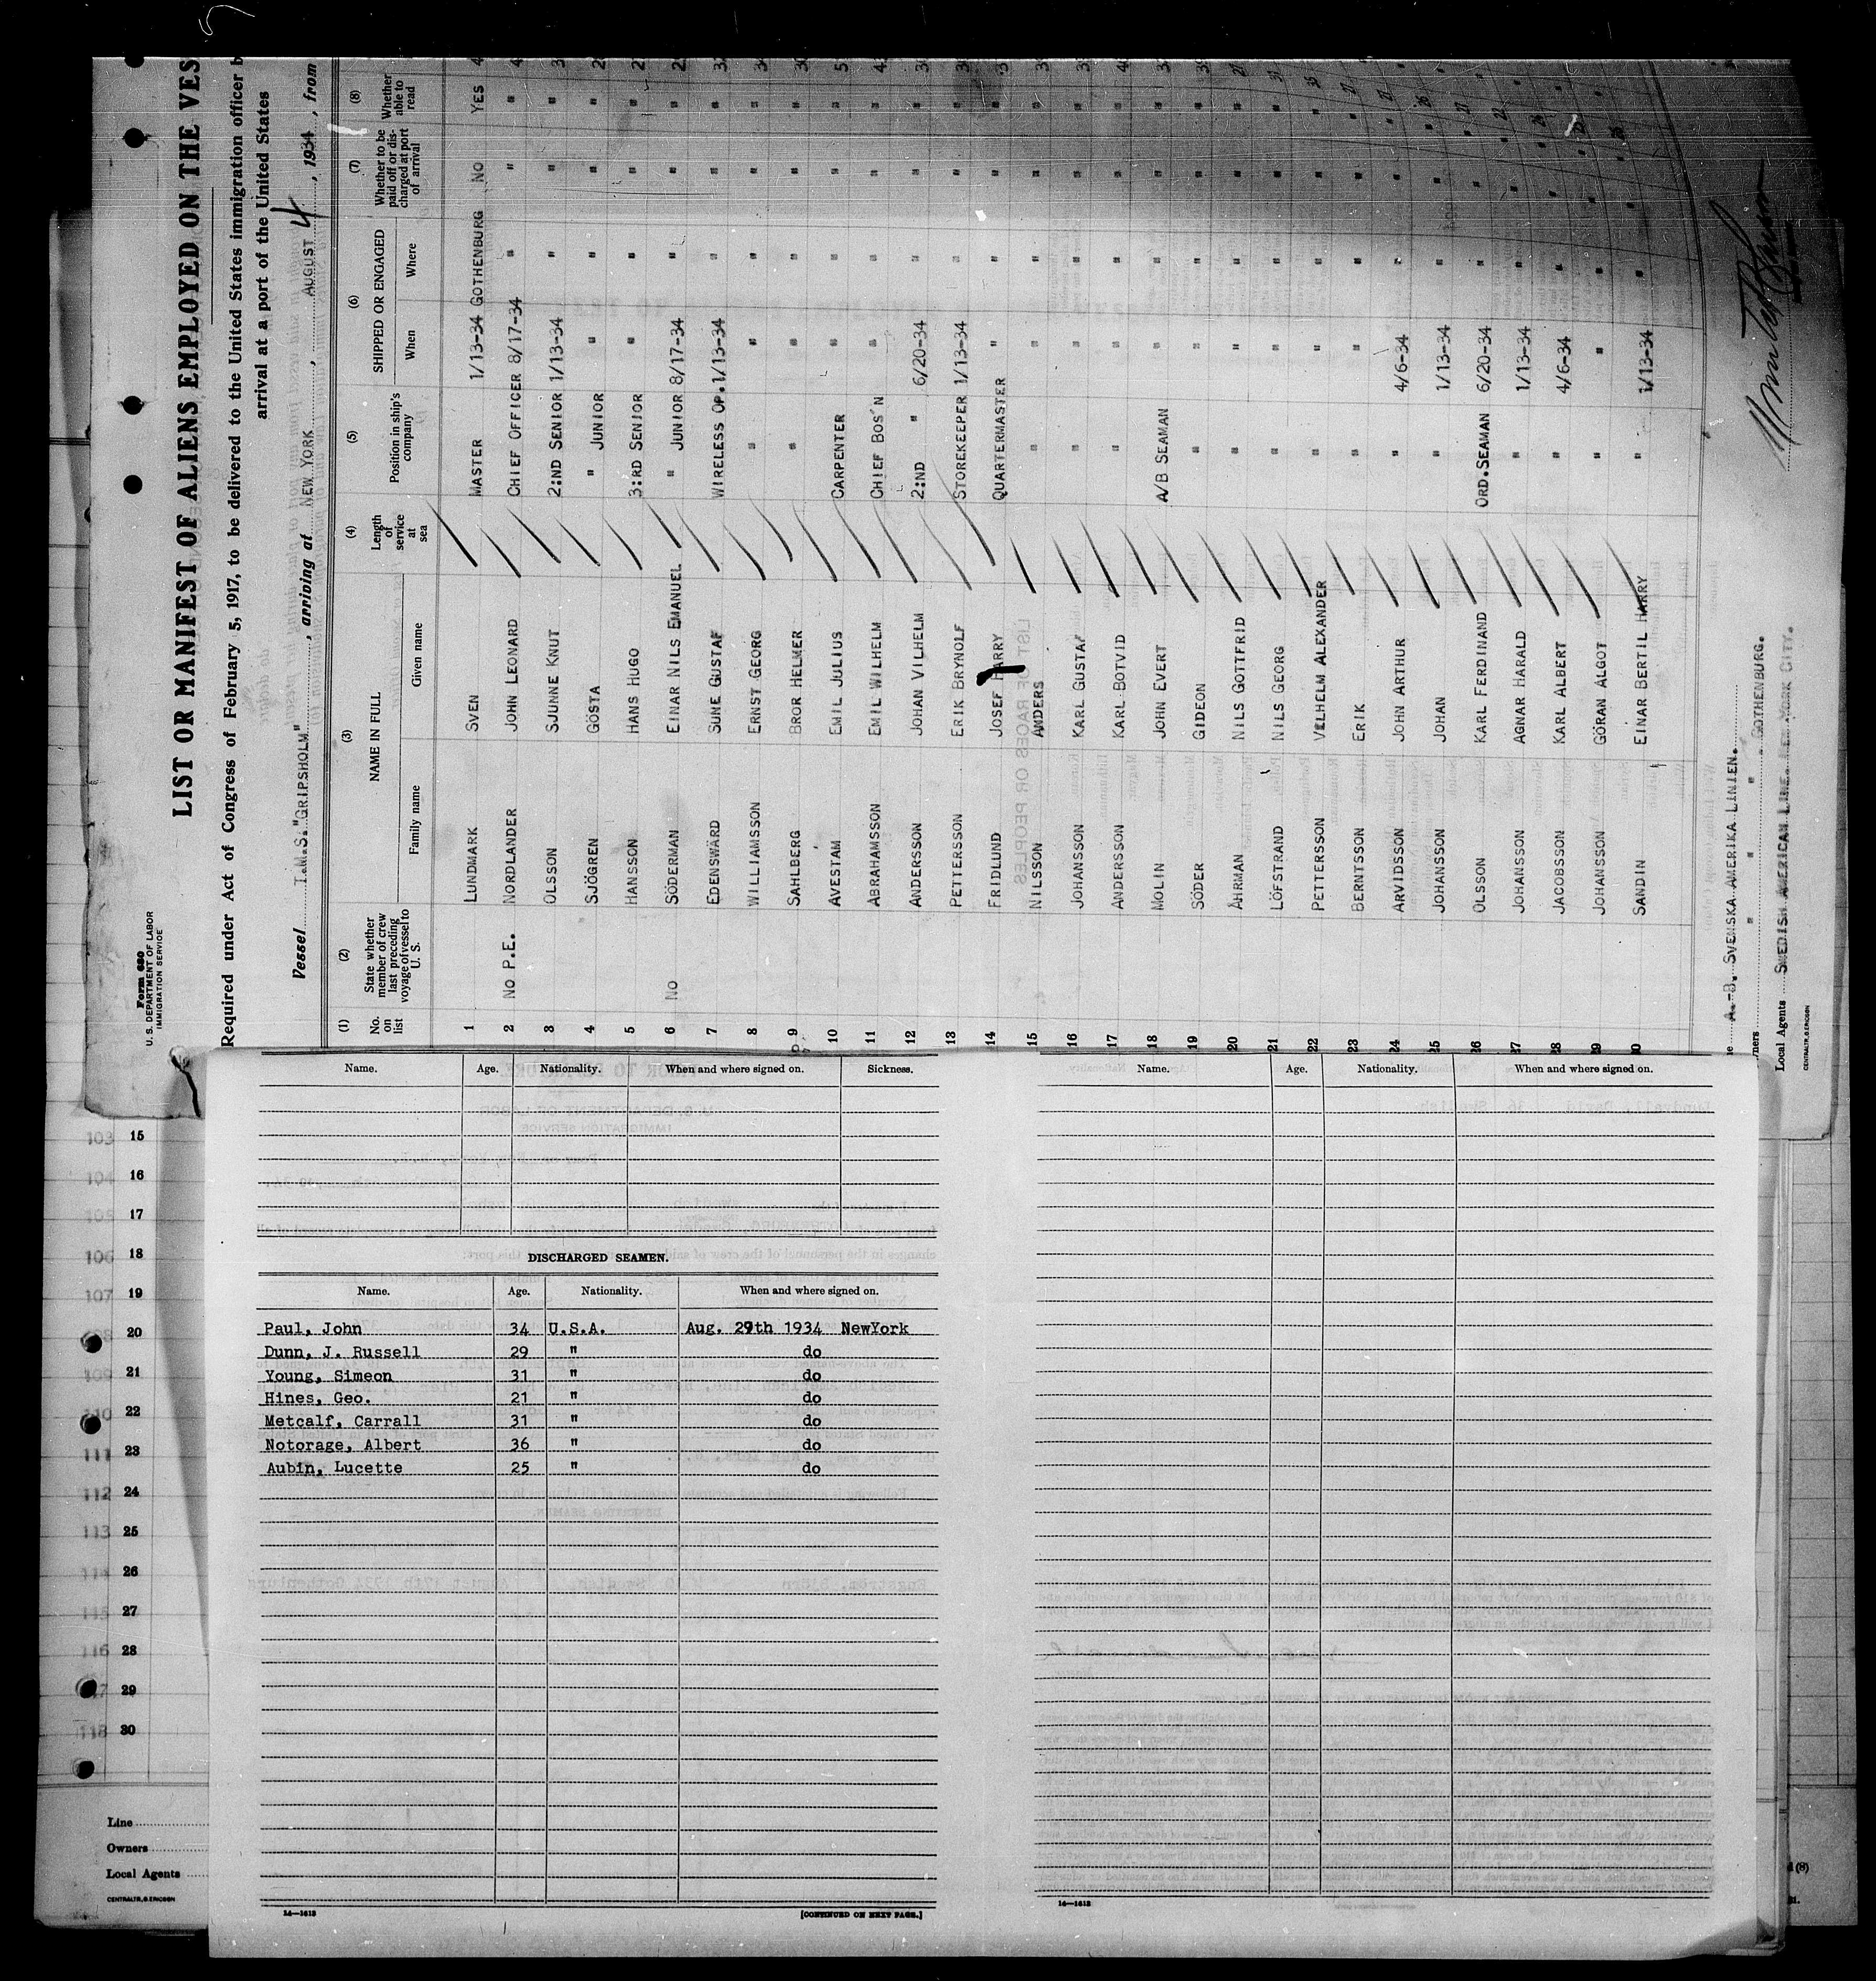 Form 680
U. S. DEPARTMENT OF LABOR
IMMIGRATION SERVICE
LIST OR MANIFEST OF ALIENS EMPLOYED ON THE VES
Required under Act of Congress of February 5, 1917, to be delivered to the United States immigration officer b
arrival at a port of the United States
Vessel T.M.S."GRIPSHOLM", arriving at NEW YORK, AUGUST 4, 1934, from
(1) (2) (3) (4) (5) (6) (7) (8)
No. on list State whether member of crew last preceding voyage of vessel to U. S. NAME IN FULL Length of service at sea Position in ship's company SHIPPED OR ENGAGED Whether to be paid off or discharged at port of arrival Whether able to read
Family name Given name When Where
1 LUNDMARK SVEN MASTER 1/13-34 GOTHENBURG NO YES
2 No P.E. NORDLANDER JOHN LEONARD CHIEF OFFICER 8/17-34 " " "
3 OLSSON SJUNNE KNUT 2:ND SENIOR 1/13-34 " " "
4 SJÖGREN GÖSTA " JUNIOR " " " "
5 HANSSON HANS HUGO 3:RD SENIOR " " " "
6 No SÖDERMAN EINAR NILS EMANUEL " JUNIOR 8/17-34 " " "
7 EDENSWÄRD SUNE GUSTAF WIRELESS OP. 1/13-34 " " "
8 WILLIAMSSON ERNST GEORG " " " " "
9 SAHLBERG BROR HELMER " " " " "
10 AVESTAM EMIL JULIUS CARPENTER " " " "
11 ABRAHAMSSON EMIL WILHELM CHIEF BOS'N " " " "
12 ANDERSSON JOHAN VILHELM 2:ND " 6/20-34 " " "
13 PETTERSSON ERIK BRYNOLF STOREKEEPER 1/13-34 " " "
14 FRIDLUND JOSEF HARRY QUARTERMASTER " " " "
15 NILSSON ANDERS " " " " "
16 JOHANSSON KARL GUSTAV " " " " "
17 ANDERSSON KARL BOTVID " " " " "
18 MOLIN JOHN EVERT A/B SEAMAN " " " "
19 SÖDER GIDEON " " " " "
20 ÅHRMAN NILS GOTTFRID " " " " "
21 LÖFSTRAND NILS GEORG " " " " "
22 PETTERSSON VELHELM ALEXANDER " " " " "
23 BERNTSSON ERIK " " " " "
24 ARVIDSSON JOHN ARTHUR " 4/6-34 " " "
25 JOHANSSON JOHAN " 1/13-34 " " "
26 OLSSON KARL FERDINAND ORD.SEAMAN 6/20-34 " " "
27 JOHANSSON AGNAR HARALD " 1/13-34 " " "
28 JACOBSSON KARL ALBERT " 4/6-34 " " "
29 JOHANSSON GÖRAN ALGOT " " " " "
30 SANDIN EINAR BERTIL HARRY " 1/13-34 " " "
A.-B. SVENSKA AMERIKA LINIEN.
" " " GOTHENBURG.
Local Agents SWEDISH AMERICAN LINE. NEW YORK CITY.
CENTRALTR.G.ERICSON
Name. Age. Nationality. When and where signed on. Sickness.
DISCHARGED SEAMEN.
Name. Age. Nationality. When and where signed on.
Paul, John 34 U.S.A. Aug. 29th 1934 NewYork
Dunn, J. Russell 29 " do
Young, Simeon 31 " do
Hines, Geo. 21 " do
Metcalf, Carrall 31 " do
Notorage, Albert 36 " do
Aubin, Lucette 25 " do
14—1613
[CONTINUED ON NEXT PAGE.]
Name. Age. Nationality. When and where signed on.
14—1613
103 15
104 16
105 17
106 18
107 19
20
109 21
110 22
111 23
112 24
113 25
114 26
115 27
116 28
29
118 30
Line
Owners
Local Agents
CENTRALTR.G.ERICSON